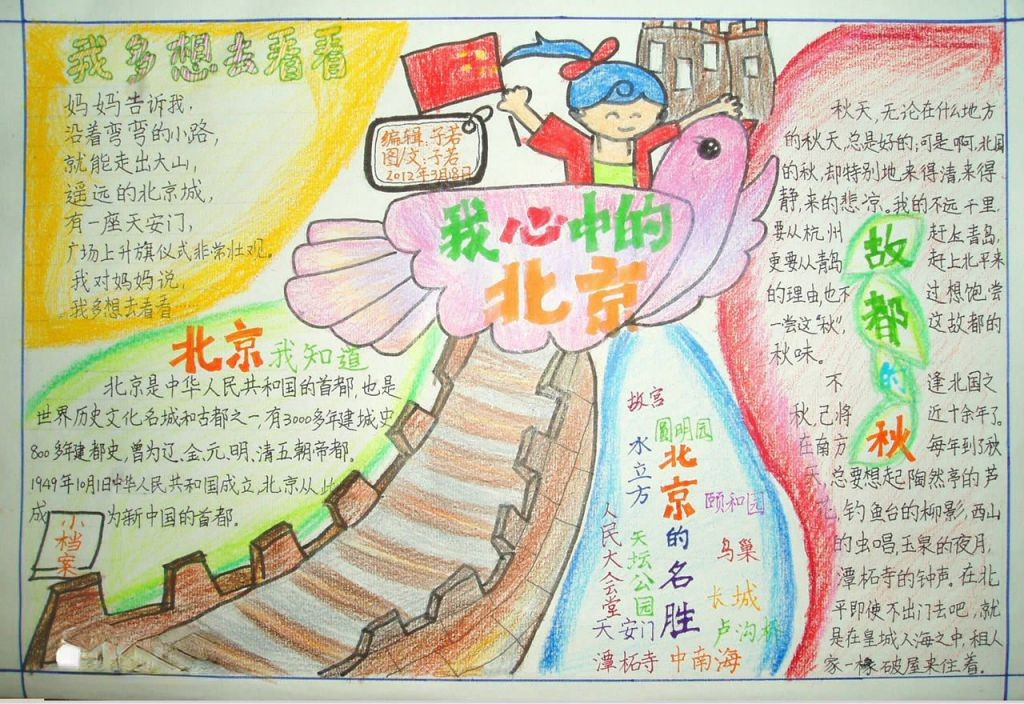 我多想去看看
妈妈告诉我,
沿着弯弯的小路,
就能走出大山,
遥远的北京城,
有一座天安门,
广场上升旗仪式非常壮观。
我对妈妈说,
我多想去看看……
编辑:子若
图/文:子若
2012年3月8日
我心中的
北京
北京我知道
北京是中华人民共和国的首都,也是
世界历史文化名城和古都之一,有3000多年建城史
800多年建都史,曾为辽、金、元、明、清五朝帝都。
1949年10月1日中华人民共和国成立,北京从此
成为新中国的首都。
小档案
北京的名胜
故宫
圆明园
水立方
颐和园
人民大会堂
天坛公园
鸟巢
长城
天安门
卢沟桥
潭柘寺
中南海
故都的秋
秋天,无论在什么地方
的秋天,总是好的;可是啊,北国
的秋,却特别地来得清,来得
静,来的悲凉。我的不远千里
要从杭州赶上青岛,
更要从青岛赶上北平来
的理由,也不过想饱尝
一尝这“秋”,这故都的
秋味。
不逢北国之
秋,已将近十余年了。
在南方每年到了秋
天,总要想起陶然亭的芦
花,钓鱼台的柳影,西山
的虫唱,玉泉的夜月,
潭柘寺的钟声。在北
平即使不出门去吧,就
是在皇城人海之中,租人
家一椽破屋来住着。